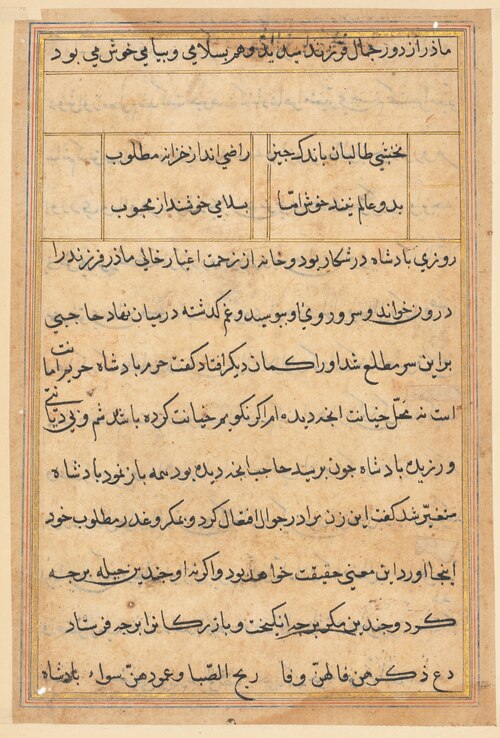 مادر از دور جمال فرزند میدید و هم بسلامی و پیامی خوش می بود
نخشبی طالبان باندک چیز راضی اند از خزانه مطلوب
بدو عالم نیند خوش اما بسلامی خوشند از محبوب
روزی پادشاه در شکار بود و خانه از زحمت اغیار خالی مادر فرزند را
درون خواند و سر و روی او ببوسید و غم گذشته در میان نهاد حاجبی
برین سر مطلع شد او را گمان دیگر افتاد گفت حرم پادشاه حریم امانت
است نه محل خیانت آنچه دیده ام اگر نگویم خیانت کرده باشم و بی دیانتی
ورزیده پادشاه چون برسید حاجب آنچه دیده بود همه باز نمود پادشاه
متغیر شد گفت این زن برادر جوال افتعال کرد و بمکر و غدر مطلوب خود
اینجا آورد این معنی حقیقت خواهد بود و اگر نه او چندین حیله بر چه
کرد و چندین مکر بر چه انگیخت و بازرگانرا بر چه فرستاد
دع ذکرهن فما لهن وفا ریح الصبا و عهودهن سواء پادشاه